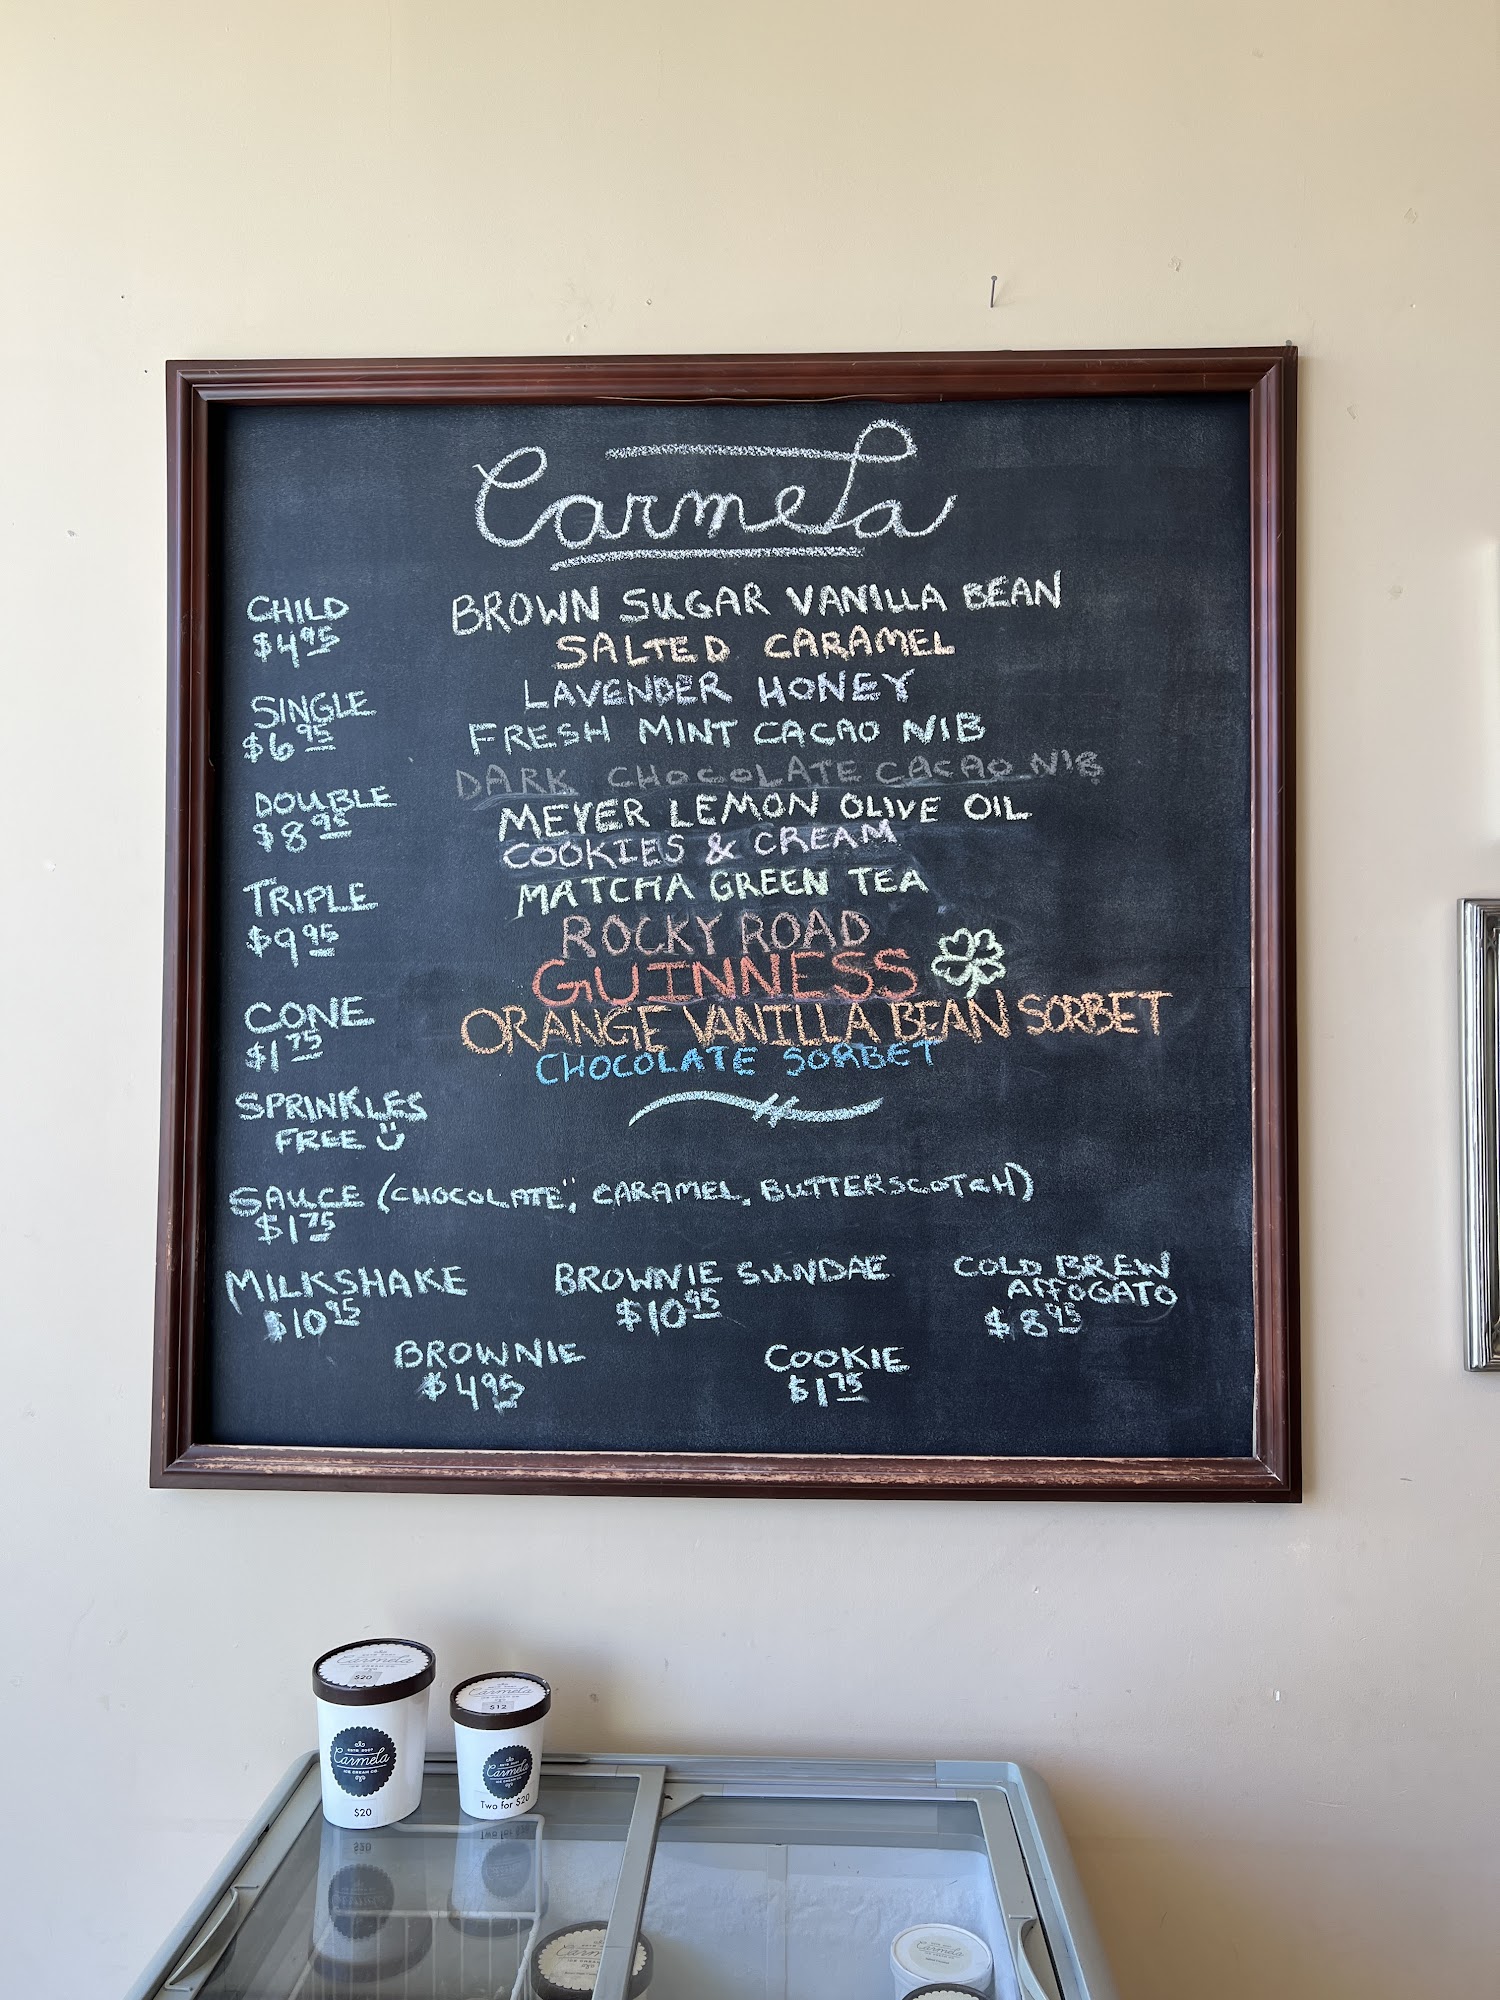 Carmela
CHILD
$4.95
SINGLE
$6.95
DOUBLE
$8.95
TRIPLE
$9.95
CONE
$1.75
SPRINKLES
FREE
BROWN SUGAR VANILLA BEAN
SALTED CARAMEL
LAVENDER HONEY
FRESH MINT CACAO NIB
DARK CHOCOLATE CACAO NIB
MEYER LEMON OLIVE OIL
COOKIES & CREAM
MATCHA GREEN TEA
ROCKY ROAD
GUINNESS
ORANGE VANILLA BEAN SORBET
CHOCOLATE SORBET
SAUCE (CHOCOLATE, CARAMEL, BUTTERSCOTCH)
$1.75
MILKSHAKE
$10.95
BROWNIE SUNDAE
$10.95
COLD BREW
AFFOGATO
$8.95
BROWNIE
$4.95
COOKIE
$1.75
Carmela
$20
Carmela
ICE CREAM CO.
$20
Carmela
$12
Carmela
ICE CREAM CO.
Two for $20
Carmela